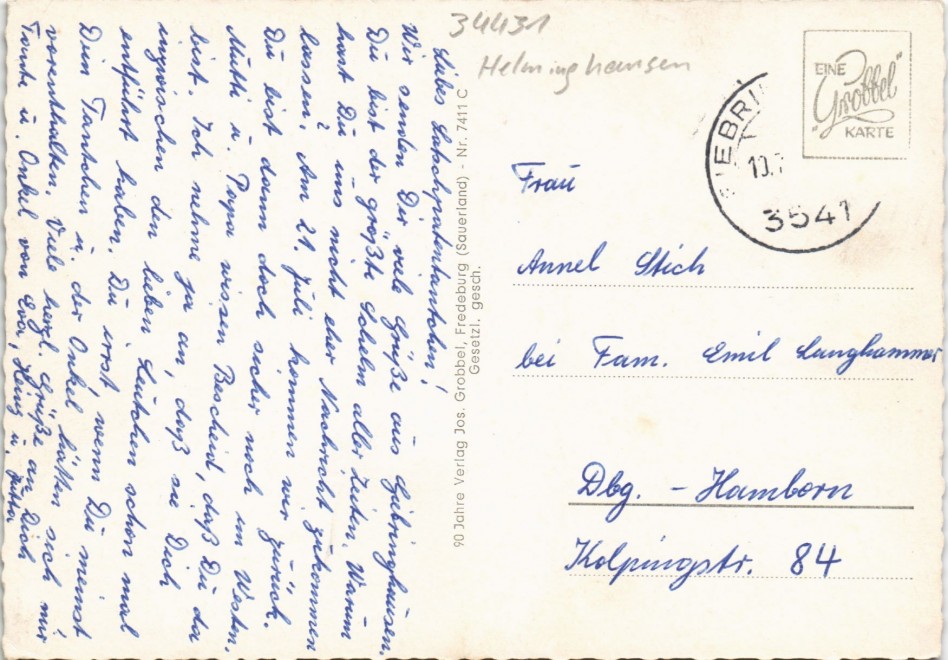 Liebes
Wir senden Dir viele Grüße aus Giebringhausen.
Du bist der größte Schelm aller Zeiten. Warum
hast Du uns nicht eher Nachricht zukommen
lassen? Am 21. Juli kommen wir zurück.
Du bist dann doch sicher noch im Westen.
Mutti u. Papa wissen Bescheid, daß Du da
bist. Ich nehme ja an, daß sie Dich
inzwischen den lieben Leutchen schon mal
entführt haben. Du irrst wenn Du meinst
Dein Tantchen u. der Onkel hätten sich mir
vorenthalten. Viele herzl. Grüße an Dich
Tante u. Onkel von Eva, Heinz u.
90 Jahre Verlag Jos. Grobbel, Fredeburg (Sauerland) – Nr. 7411 C
Gesetzl. gesch.
34431
Helminghausen
EINE
"Grobbel"
KARTE
EBRI
10.
3541
Frau
Annel Stich
bei Fam. Emil Langhammer
Dbg. - Hamborn
Kolpingstr. 84